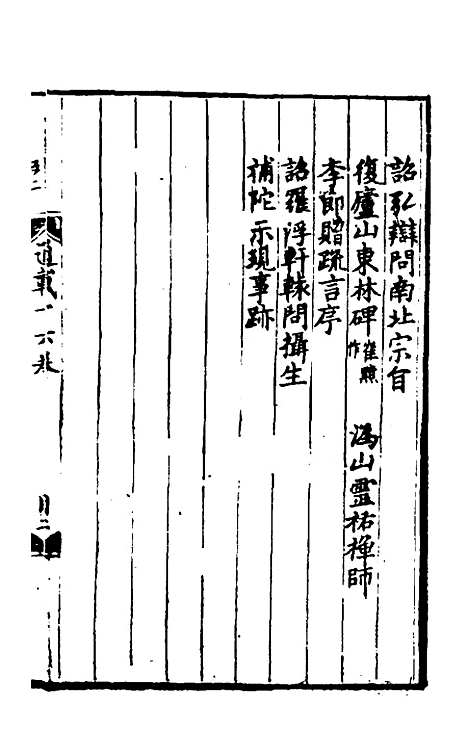 詔弘辯問南北宗旨
復廬山東林碑 崔黯作 溈山靈祐禪師
李節贈疏言序
詔羅浮軒轅問攝生
補陀示現事跡
通載十六卷
目二